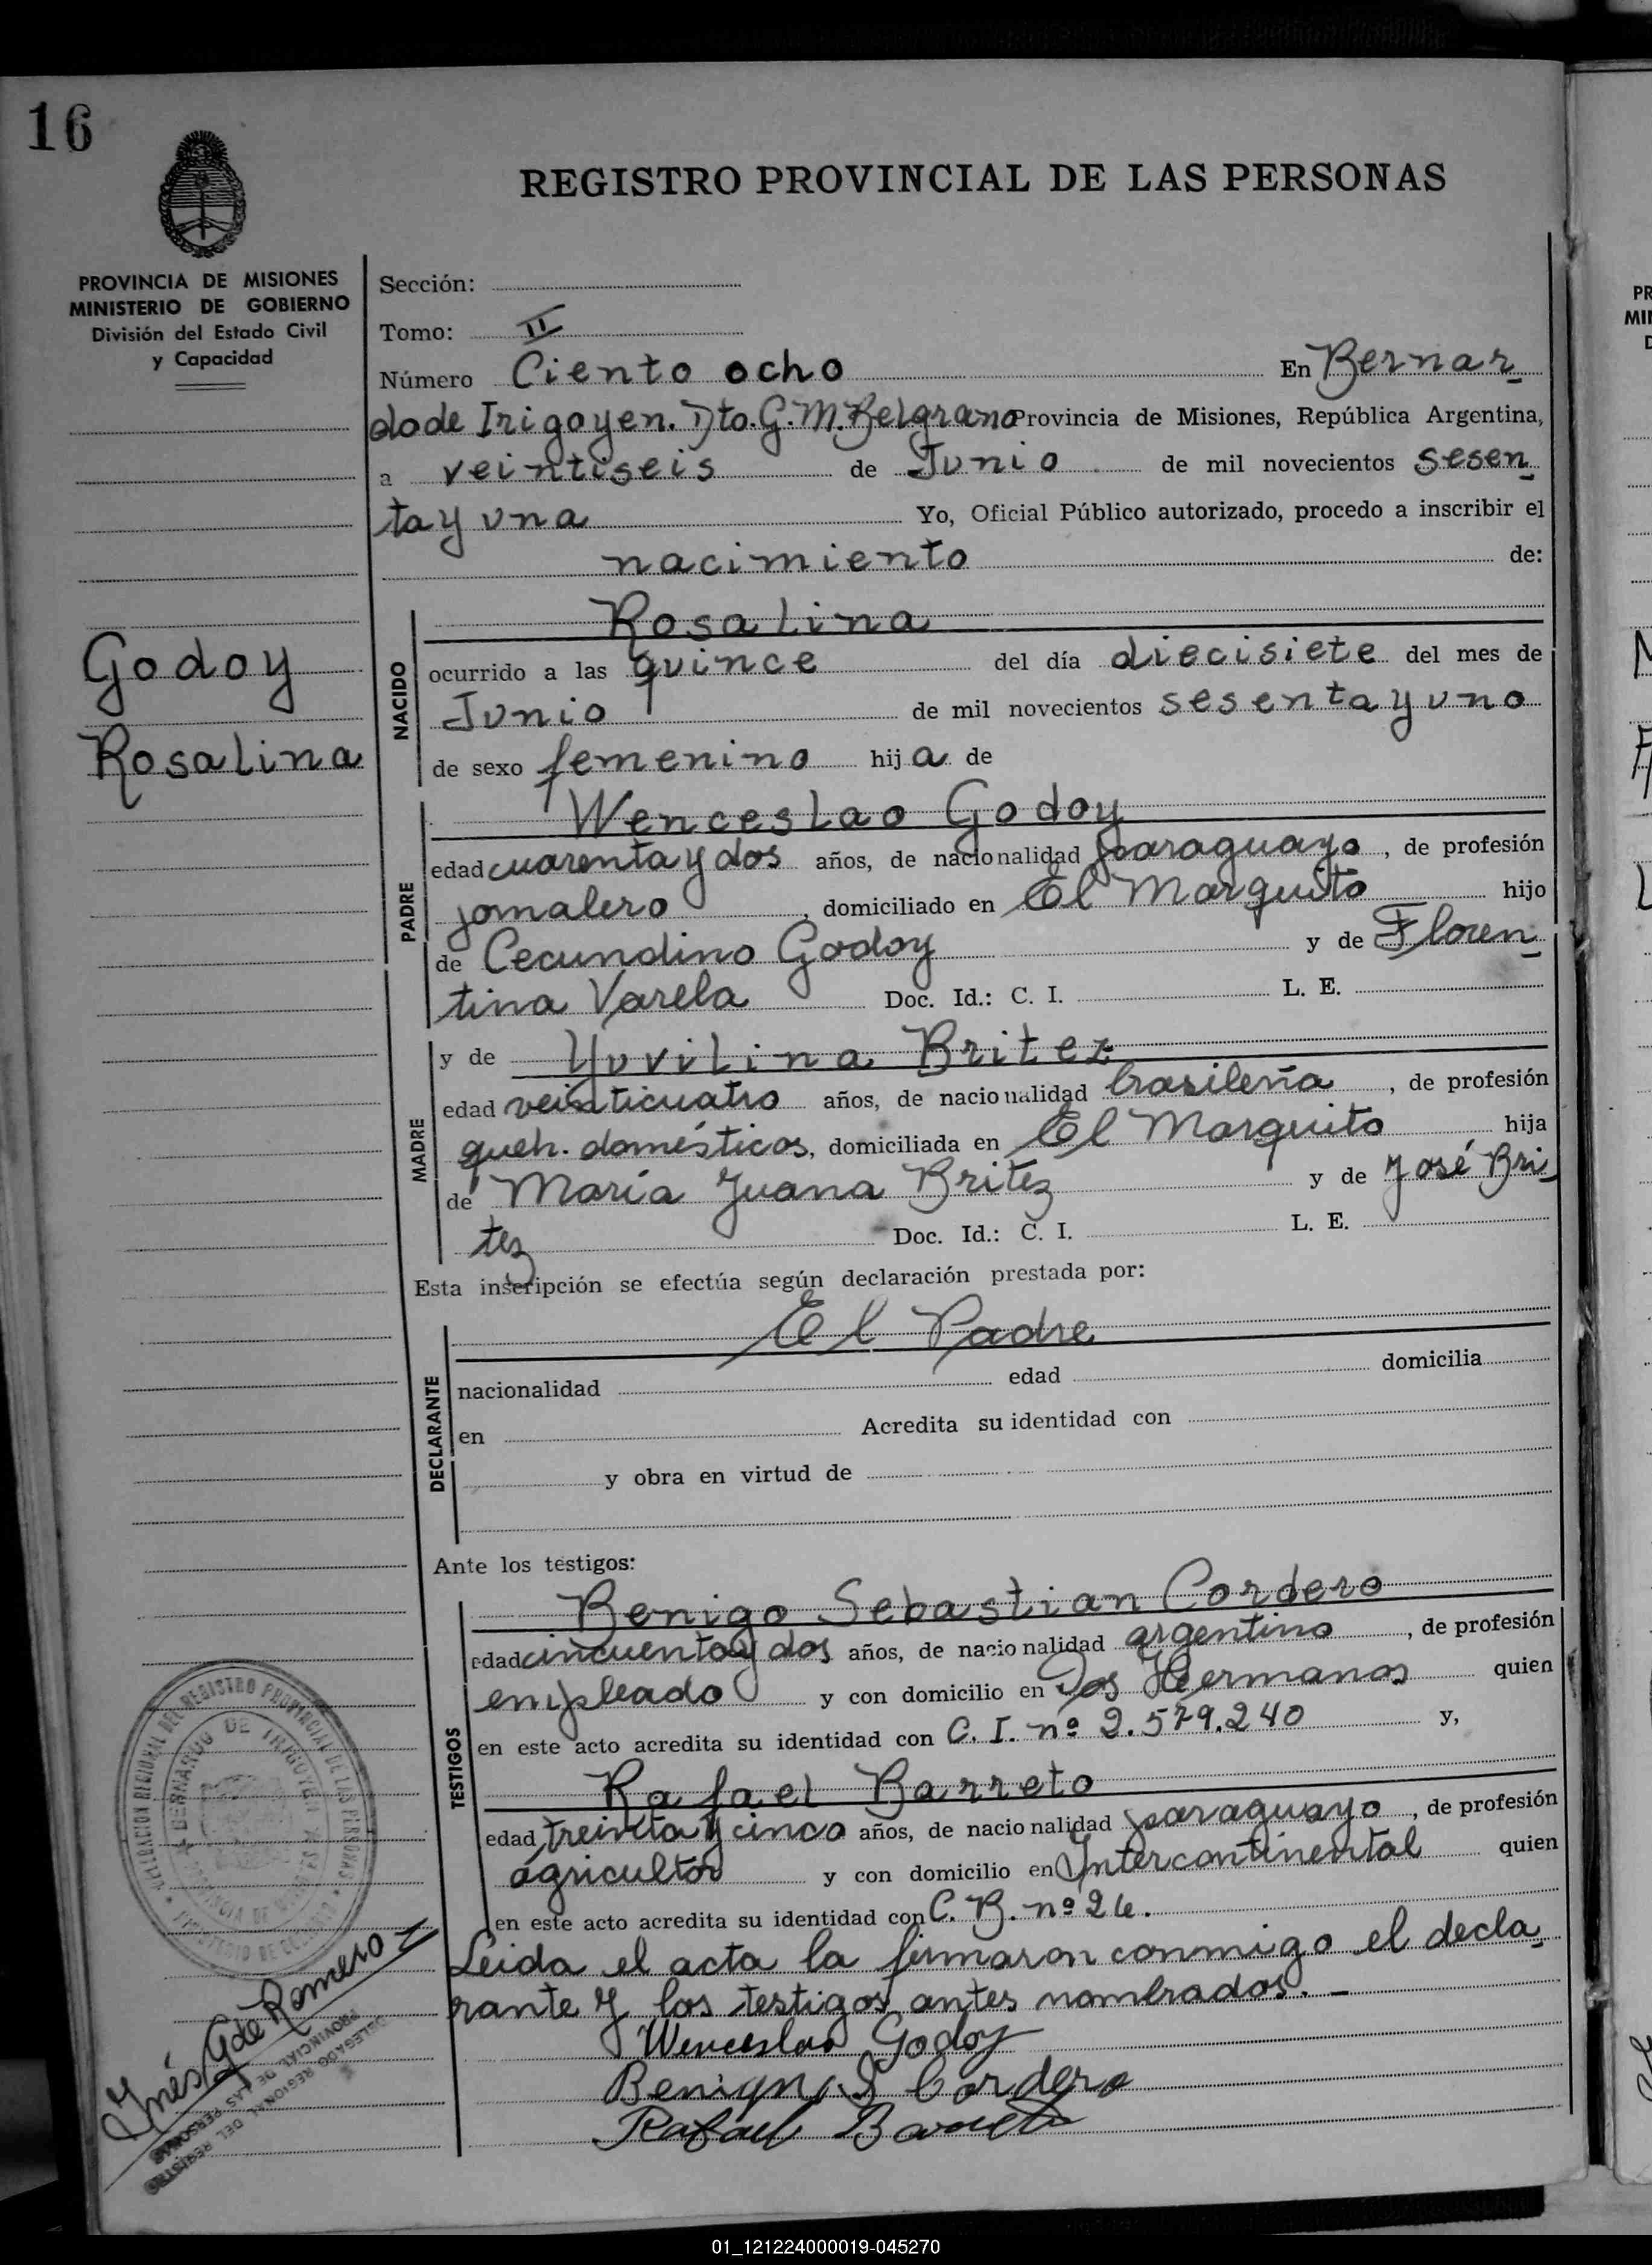 16
REGISTRO PROVINCIAL DE LAS PERSONAS
PROVINCIA DE MISIONES
MINISTERIO DE GOBIERNO
División del Estado Civil
y Capacidad
Godoy
Rosalina
Sección:
Tomo: II
Número Ciento ocho En Bernar
do de Irigoyen. Dto. G. M. Belgrano Provincia de Misiones, República Argentina,
a veintiseis de Junio de mil novecientos sesen
ta y una Yo, Oficial Público autorizado, procedo a inscribir el
nacimiento de:
NACIDO
Rosalina
ocurrido a las quince del día diecisiete del mes de
Junio de mil novecientos sesenta y uno
de sexo femenino hija de
PADRE
Wenceslao Godoy
edad cuarenta y dos años, de nacionalidad paraguayo, de profesión
jornalero, domiciliado en El Marquito hijo
de Cecundino Godoy y de Floren
tina Varela Doc. Id.: C. I. L. E.
MADRE
y de Yuvilina Britez
edad veinticuatro años, de nacionalidad brasileña, de profesión
queh. domésticos, domiciliada en El Marquito hija
de María Juana Britez y de José Bri
tez Doc. Id.: C. I. L. E.
Esta inscripción se efectúa según declaración prestada por:
DECLARANTE
El Padre
nacionalidad edad domicilia
en Acredita su identidad con
y obra en virtud de
Ante los testigos:
TESTIGOS
Benigo Sebastian Cordero
edad cincuenta y dos años, de nacionalidad argentino, de profesión
empleado y con domicilio en Dos Hermanas quien
en este acto acredita su identidad con C. I. nº 2.579.240 y,
Rafael Barreto
edad treinta y cinco años, de nacionalidad paraguayo, de profesión
agricultor y con domicilio en Intercontinental quien
en este acto acredita su identidad con C. B. nº 26.
Leida el acta la firmaron conmigo el decla
rante y los testigos antes nombrados. -
Wenceslao Godoy
Benigno S Cordero
Rafael Barreto
DELEGACION REGIONAL DEL REGISTRO PROVINCIAL DE LAS PERSONAS
BERNARDO DE IRIGOYEN
PROVINCIA DE MISIONES
MINISTERIO DE GOBIERNO
Inés G de Romero
DELEGADO REGIONAL DEL REGISTRO
PROVINCIAL DE LAS PERSONAS
PR
MI
01_121224000019-045270